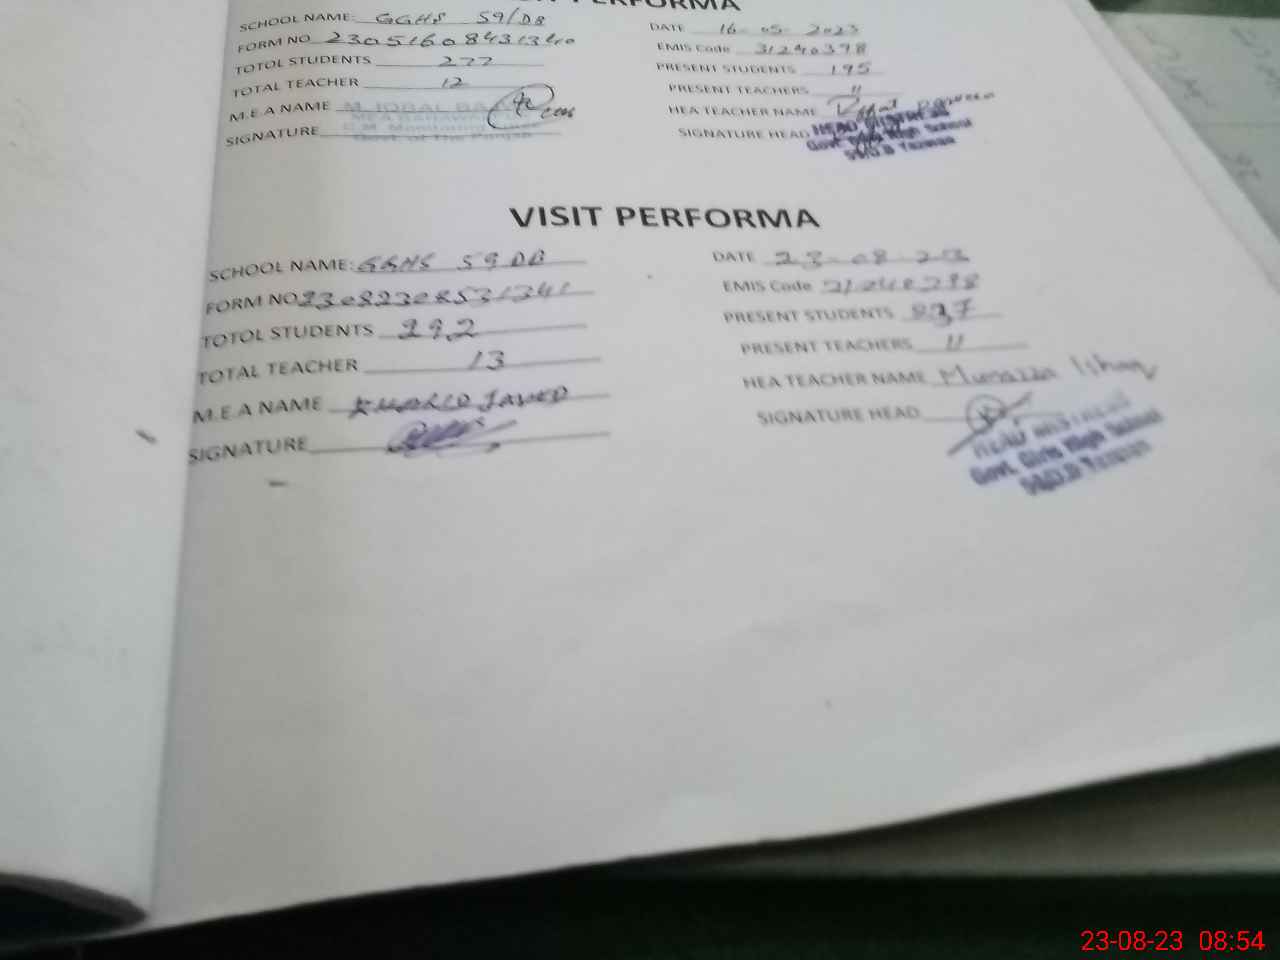 VISIT PERFORMA
SCHOOL NAME: GGHS 59/DB
DATE 16-05-2023
FORM NO 23051608431340
EMIS Code 31240398
TOTOL STUDENTS 277
PRESENT STUDENTS 195
TOTAL TEACHER 12
PRESENT TEACHERS 11
M.E.A NAME M. IQBAL
HEA TEACHER NAME
SIGNATURE
SIGNATURE HEAD
Govt. Girls High School
59/D.B Yazman
VISIT PERFORMA
SCHOOL NAME: GGHS 59 DB
DATE 23-08-23
FORM NO 23082308531341
EMIS Code
TOTOL STUDENTS 292
PRESENT STUDENTS
TOTAL TEACHER 13
PRESENT TEACHERS 11
M.E.A NAME KHALID JAVED
HEA TEACHER NAME Munazza
SIGNATURE
SIGNATURE HEAD
HEAD MISTRESS
Govt. Girls High School
59/D.B Yazman
23-08-23 08:54